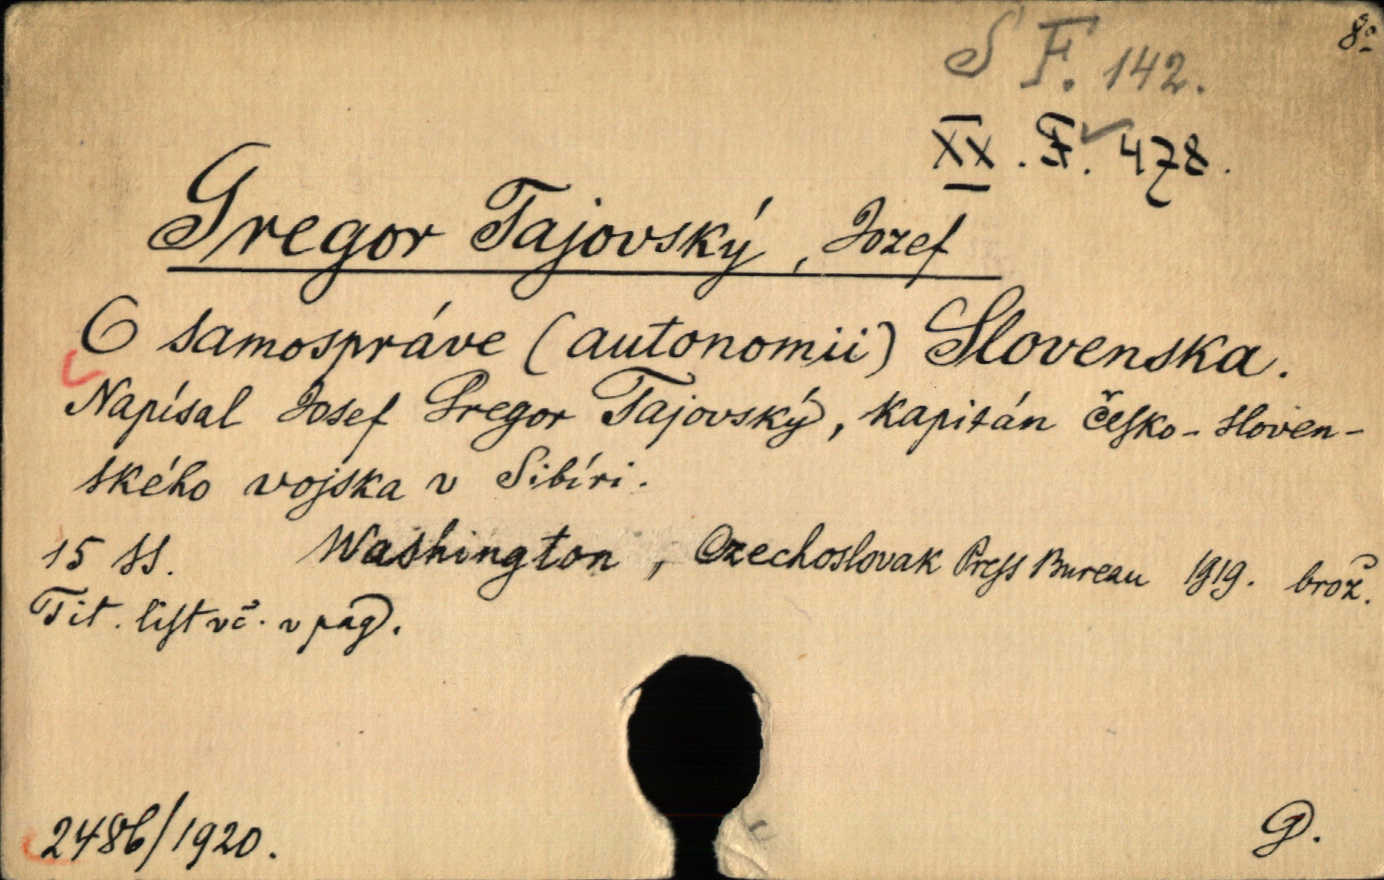 8°
S F. 142.
XX. F. 478.
Gregor Tajovský, Jozef
O samospráve (autonomii) Slovenska.
Napísal Josef Gregor Tajovský, kapitán česko-sloven-
ského vojska v Sibíri.
15 ss. Washington, Czechoslovak Press Bureau 1919. brož.
Tit. list vč. v pag.
2486/1920.